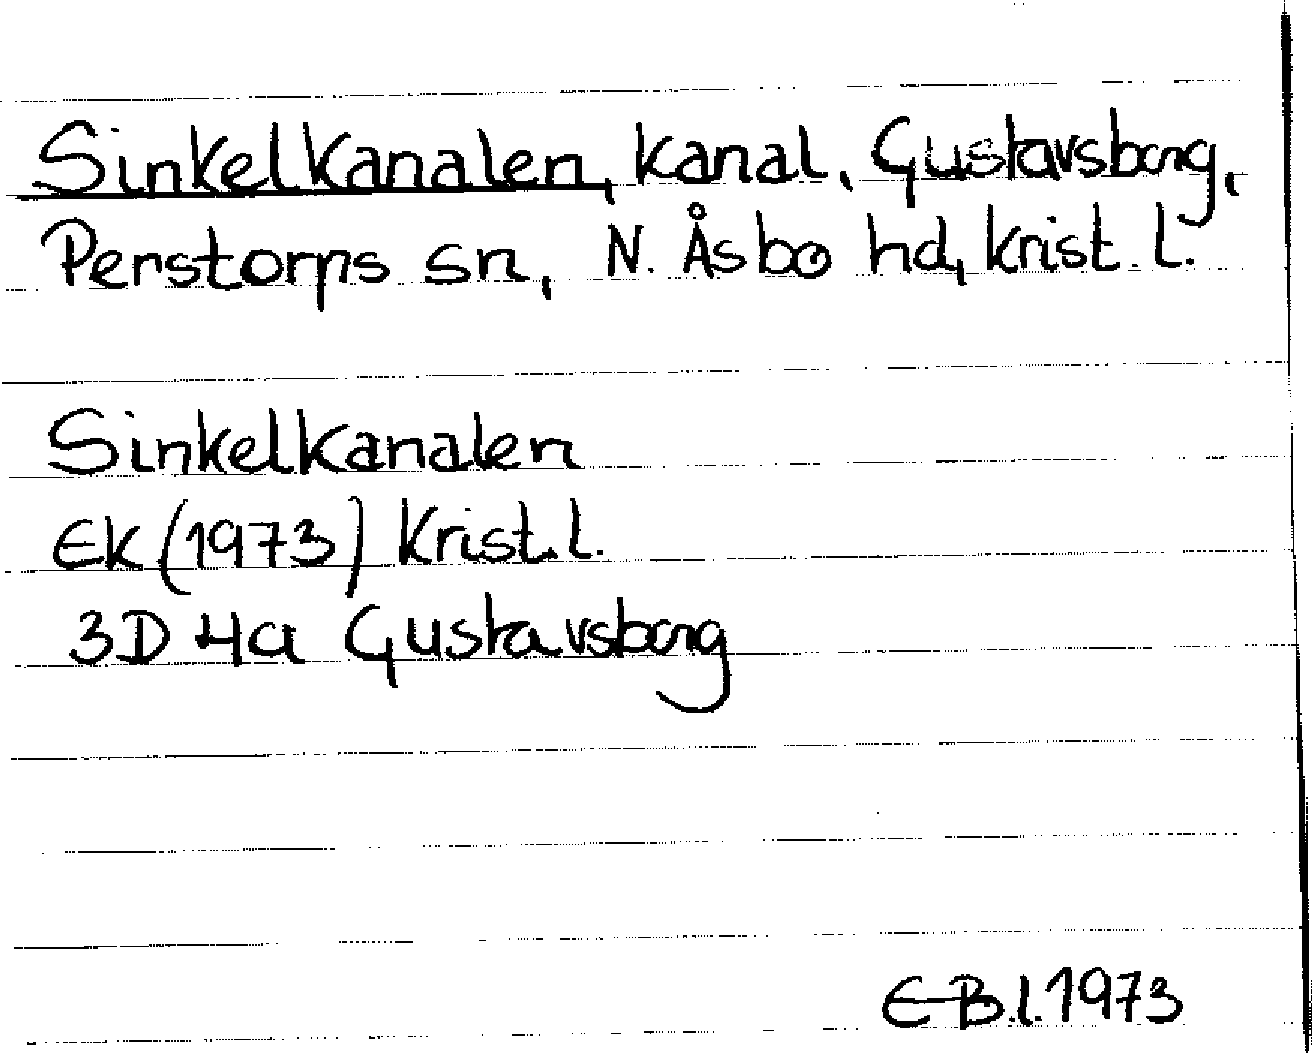 Sinkelkanalen, kanal, Gustavsborg,
Perstorps sn, N. Åsbo hd, Krist. l.
Sinkelkanalen
EK (1973) Krist. l.
3D 4a Gustavsborg
E-B.l. 1973